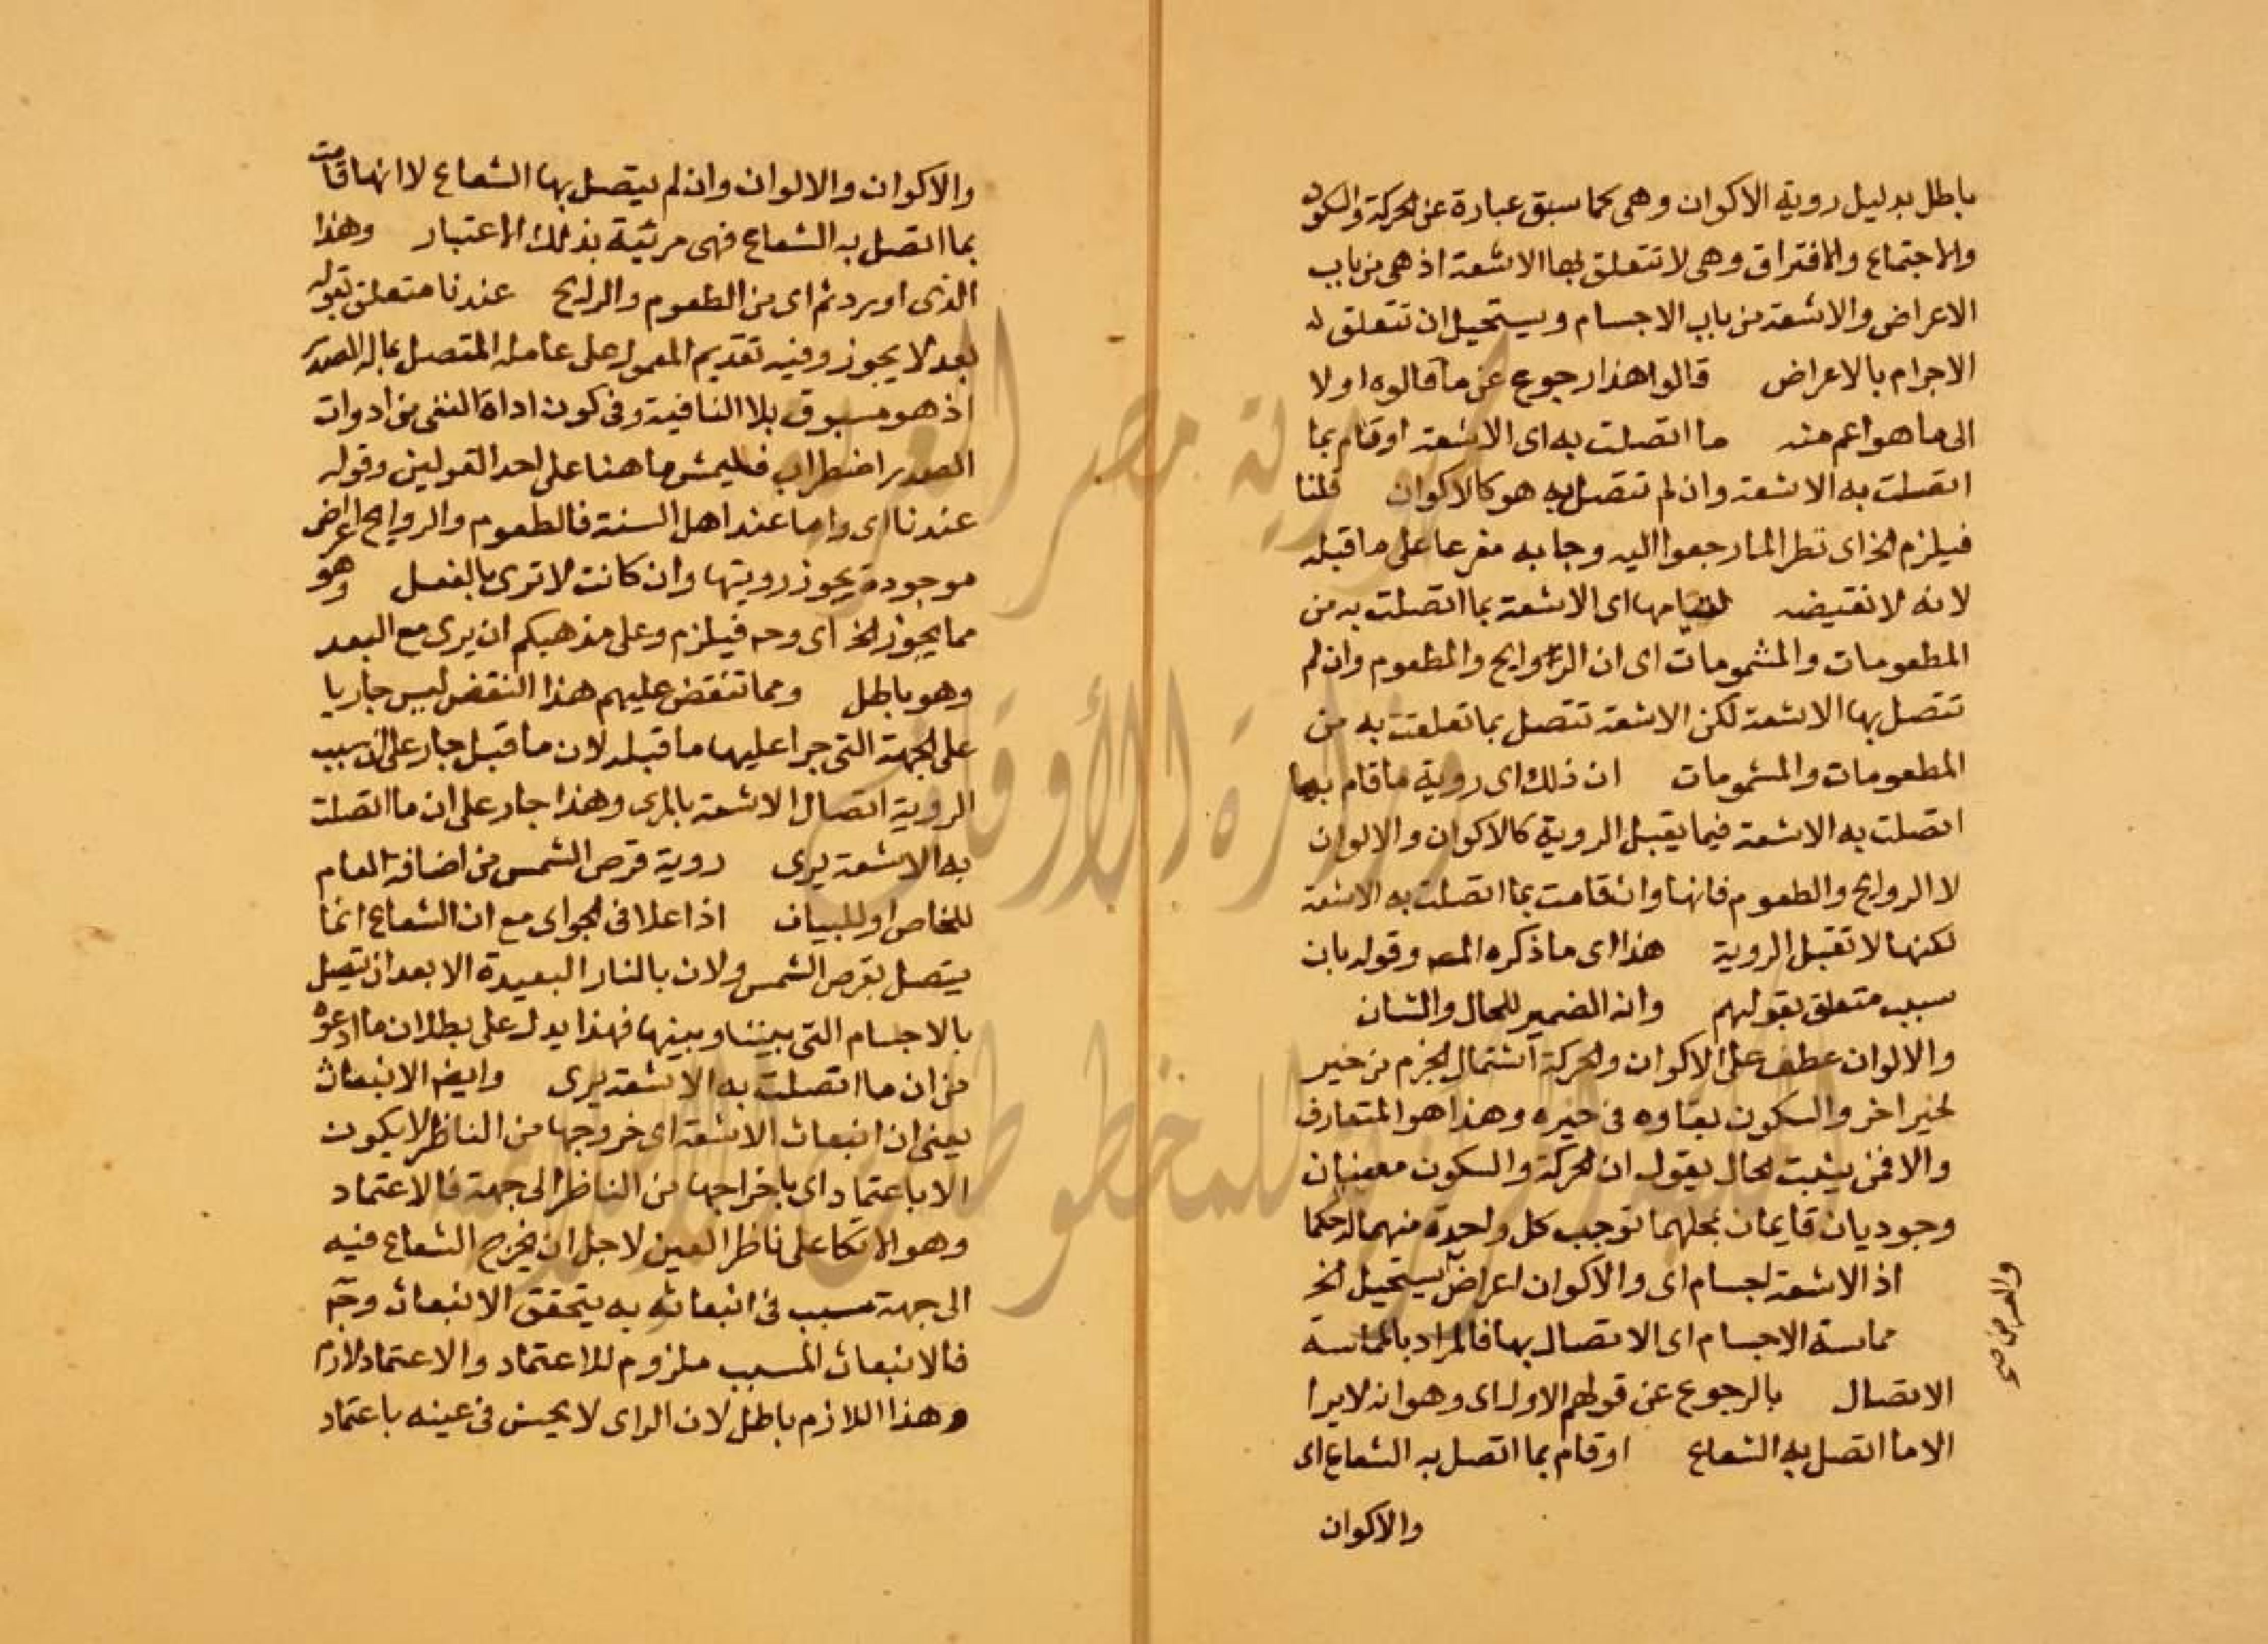 باطل بدليل روية الاكوان وهى كما سبق عبارة عن الحركة والسكون
والاجتماع والافتراق وهى لا تتعلق بها الاشعة اذ هى من باب
الاعراض والاشعة من باب الاجسام ويستحيل ان تتعلق
الاجرام بالاعراض قالوا هذا رجوع عن ما قالوه اولا
الى ما هو اعم منه ما اتصلت به اى الاشعة او قام بما
اتصلت به الاشعة وان لم تتصل به هو كالاكوان قلنا
فيلزم الخ اى نظر الما رجعوا اليه وجا به مفرعا على ما قبله
لانه لا نقيضه لقيامها اى الاشعة بما اتصلت به من
المطعومات والمشمومات اى ان الروايح والمطعوم وان لم
تتصل بها الاشعة لكن الاشعة تتصل بما تعلقت به من
المطعومات والمشمومات ان ذلك اى روية ما قام بما
اتصلت به الاشعة فيما يقبل الروية كالاكوان والالوان
لا الروايح والطعوم فانها وان قامت بما اتصلت به الاشعة
لكنها لا تقبل الروية هذا اى ما ذكره المصـ وقوله بان
سبب متعلق بقولهم وانه الضمير للحال والشان
والالوان عطف على الاكوان والحركة اشتمال الجزم من خير
لخير اخر والسكون بقاوه فى خيره وهذا هو المتعارف
والا فمن يثبت الحال يقول ان الحركة والسكون معنيان
وجوديان قايمان بمحلهما توجب كل واحدة منهما له حكما
اذ الاشعة اجسام اى والاكوان اعراض يستحيل الخ
مماسة الاجسام اى الاتصال بها فالمراد بالمماسة
الاتصال بالرجوع عن قولهم الاول اى وهو انه لا يرا
الا ما اتصل به الشعاع او قام بما اتصل به الشعاع اى
والاكوان
والعرض صح
والاكوان والالوان وان لم يتصل بها الشعاع لا انها قامت
بما اتصل به الشعاع فهى مرئية بذلك الاعتبار وهذا
الذى اورد ثم اى من الطعوم والرايح عندنا متعلق بقوله
بعد لا يجوز وفيه تقديم المعمول على عامله المتصل بماله الصدر
اذ هو مسبوق بلا النافية وفى كون اداة النفى من ادوات
الصدر اضطراب فليمش ما هنا على احد القولين وقوله
عندنا اى واما عند اهل السنة فالطعوم والروايح اعراض
موجودة يجوز رويتها وان كانت لا ترى بالفعل وهو
مما يجوز الخ اى وحـ فيلزم وعلى مذهبكم ان يرى مع البعد
وهو باطل ومما تنقض عليهم هذا النقض ليس جاريا
على الجهة التى جرا عليها ما قبله لان ما قبل جار على ان سبب
الروية اتصال الاشعة بالمرى وهذا جار على ان ما اتصلت
به الاشعة يرى روية قرص الشمس من اضافة العام
للخاص او للبيان اذا علا فى الجو اى مع ان الشعاع انما
يتصل بقرص الشمس ولان بالنار البعيدة الا بعد ان يتصل
بالاجسام التى بيننا وبينها فهذا يدل على بطلان ما ادعوه
من ان ما اتصلت به الاشعة يرى وايضـ الانبعاث
يعنى ان انبعاث الاشعة اى خروجها من الناظر لا يكون
الا باعتماد اى باخراجها من الناظر الى جهة فالاعتماد
وهو الاتكا على ناظر العين لاجل ان يخرج الشعاع فيه
الى جهة سبب فى انبعاثه به يتحقق الانبعاث وحـ
فالانبعاث المسبب ملزوم للاعتماد والاعتماد لازم
وهذا اللازم باطل لان الراى لا يحس فى عينه باعتماد